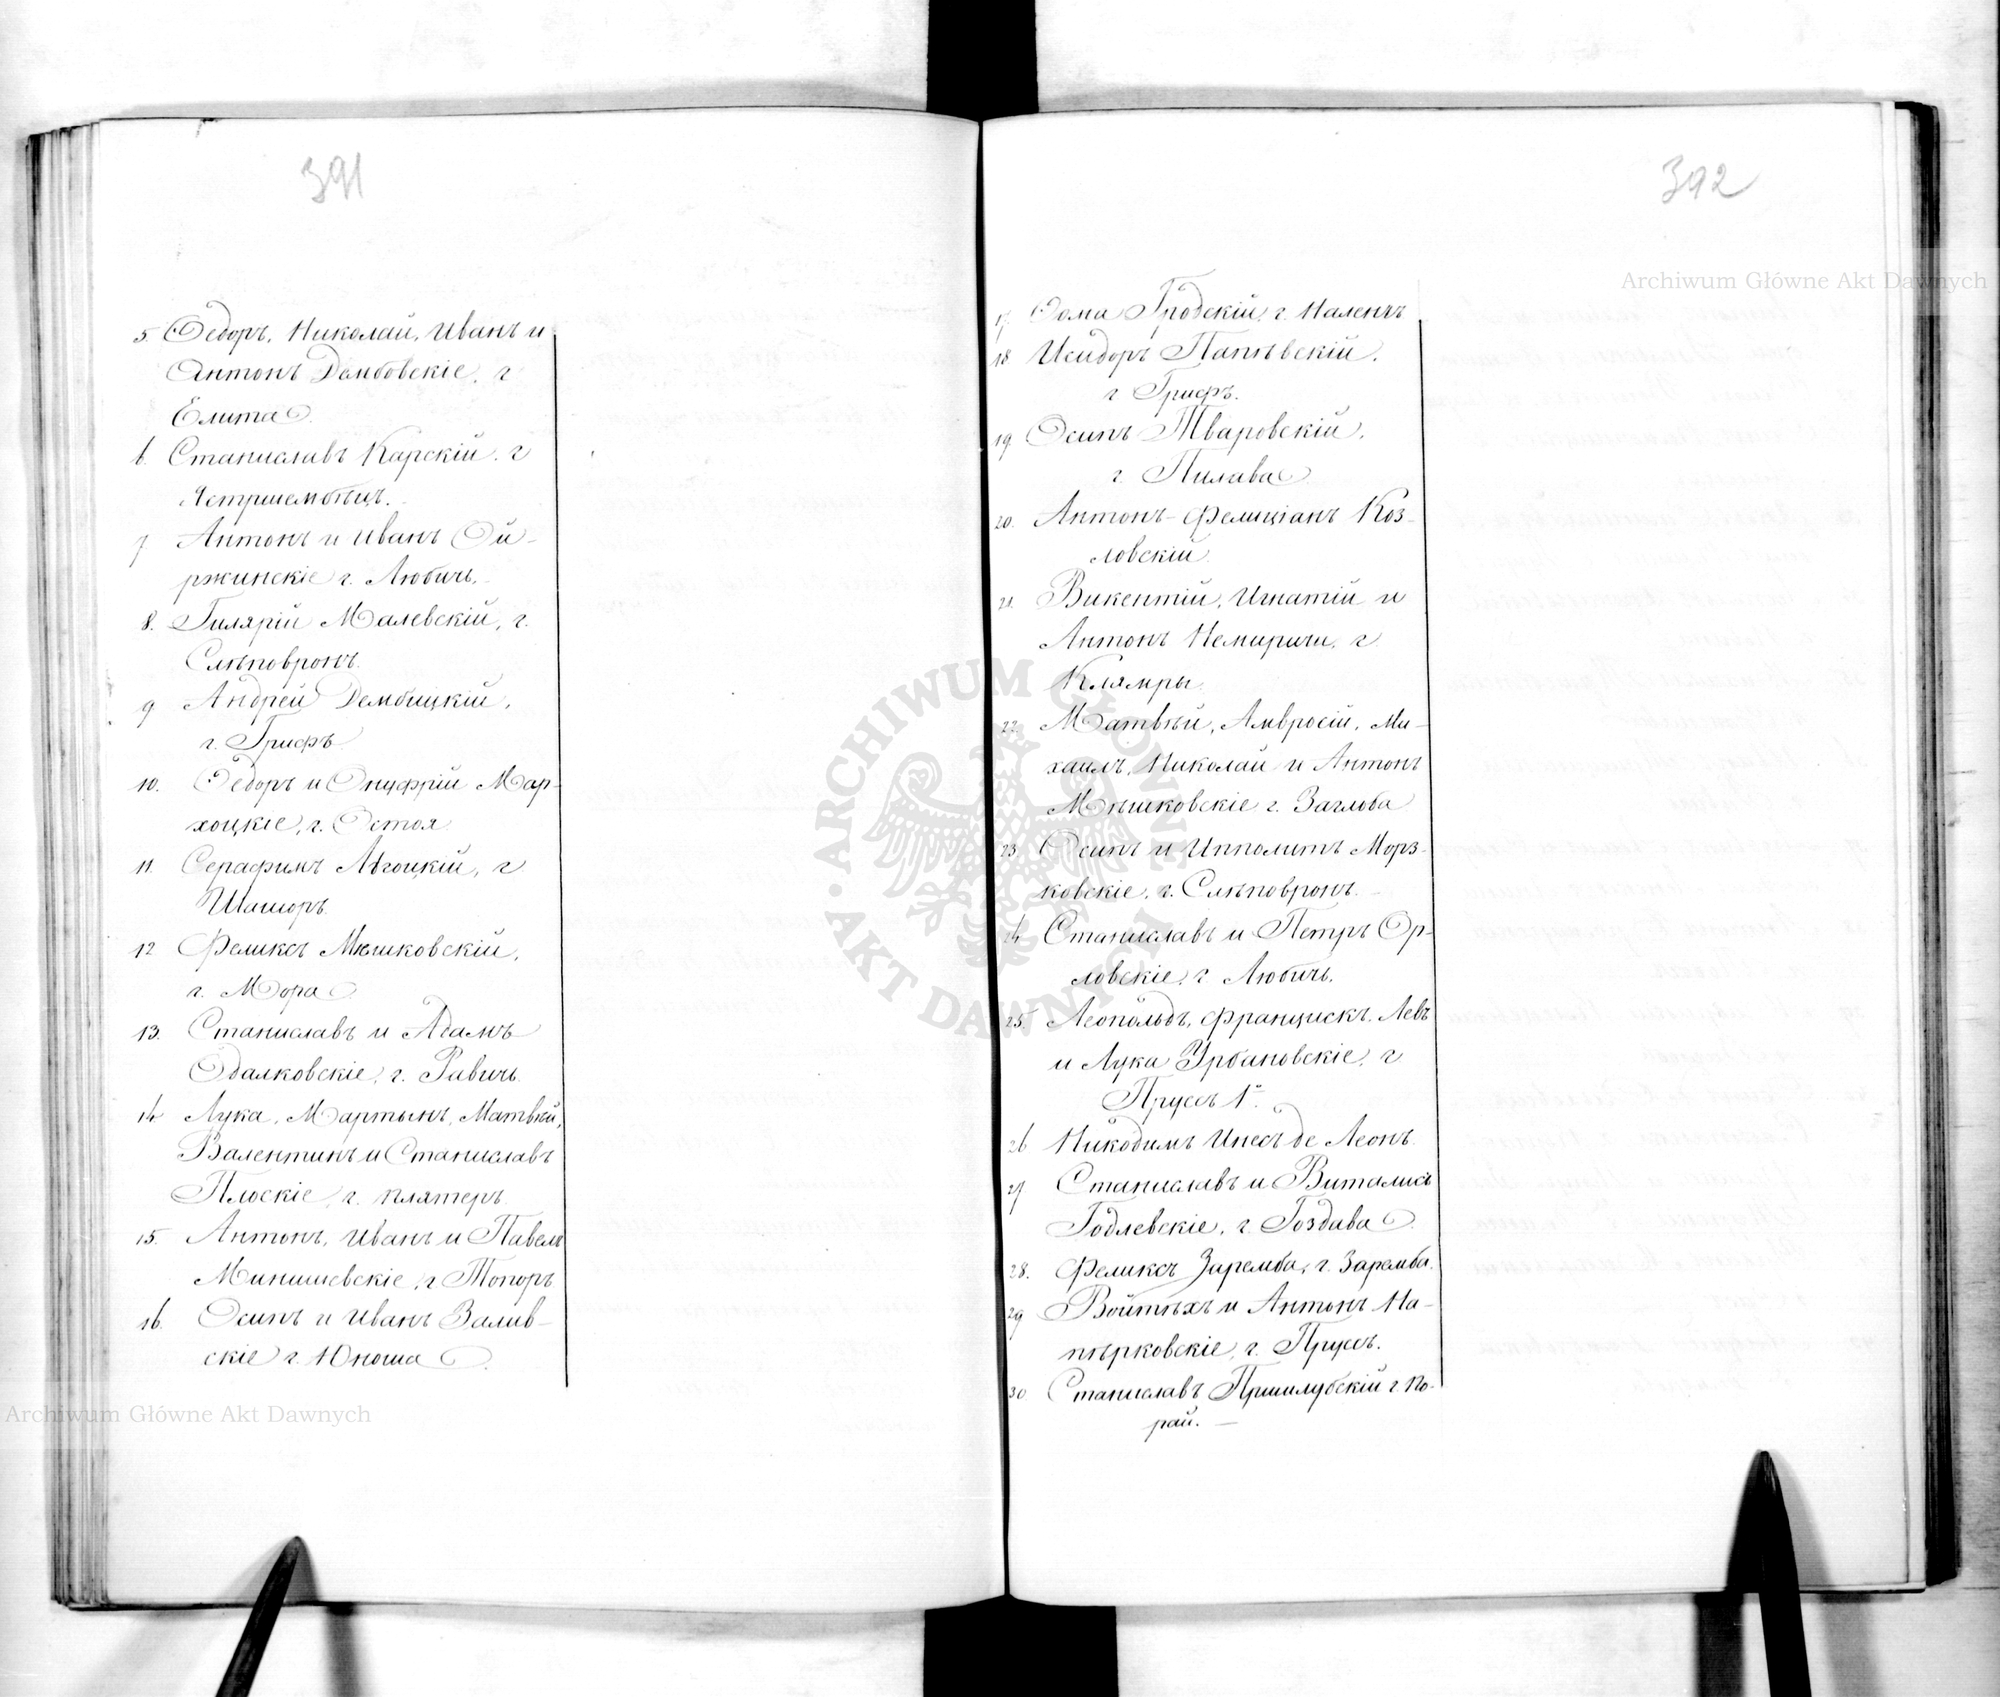 391
5. Ѳедоръ, Николай, Иванъ и
Антонъ Дембовскіе, г
Елита
6. Станиславъ Карскій. г
Ястршембецъ.
7. Антонъ и Иванъ Ой-
ржинскіе г. Любичъ.
8. Гилярій Малевскій, г.
Слѣповронъ.
9 Андрей Дембицкій,
г. Грифъ
10. Ѳедоръ и Онуфрій Мар-
хоцкіе, г. Остоя
11. Серафимъ Лѣгоцкій, г
Шашоръ.
12 Феликсъ Мѣшковскій,
г. Мора
13. Станиславъ и Адамъ
Одалковскіе, г. Равичъ.
14 Лука, Мартынъ, Матвѣй,
Валентинъ и Станиславъ
Плоскіе, г. Плятеръ.
15. Антонъ, Иванъ и Павелъ
Минишевскіе, г Топоръ
16. Осипъ и Иванъ Залив-
скіе г. Юноша
392
17. Ѳома Гродскій, г. Наленчъ
18 Исидоръ Папѣвскій,
г Грифъ.
19. Осипъ Тваровскій,
г. Пилава
20. Антонъ-Фелиціанъ Коз-
ловскій
21. Викентій, Игнатій и
Антонъ Немиричи, г
Клямры
22. Матвѣй, Амвросій, Ми-
хаилъ, Николай и Антонъ
Мѣшковскіе г. Заглоба
23. Осипъ и Ипполитъ Морз-
ковскіе, г. Слѣповронъ.
24 Станиславъ и Петръ Ор-
ловскіе, г Любичъ.
25. Леопольдъ, Францискъ, Левъ
и Лука Урбановскіе, г
Пруссъ 1º.
26 Никодимъ Инесъ де Леонъ.
27 Станиславъ и Виталисъ
Годлевскіе, г. Гоздава
28. Феликсъ Заремба, г. Заремба.
29 Войтѣхъ и Антонъ На-
пѣрковскіе, г. Пруссъ.
30 Станиславъ Пршилубскій г По-
рай.
Archiwum Główne Akt Dawnych
Archiwum Główne Akt Dawnych
ARCHIWUM GŁÓWNE • AKT DAWNYCH •